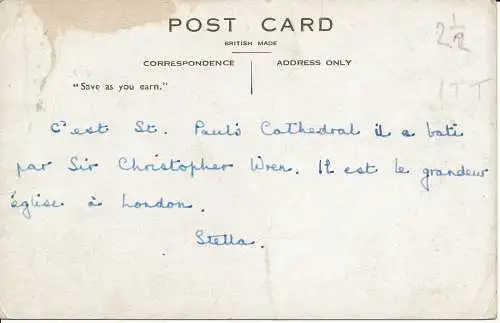 POST CARD
BRITISH MADE
CORRESPONDENCE ADDRESS ONLY
"Save as you earn."
2½
ITT
C'est St. Paul's Cathedral il a bati
par Sir Christopher Wren. Il est le grandeur
église à London.
Stella.